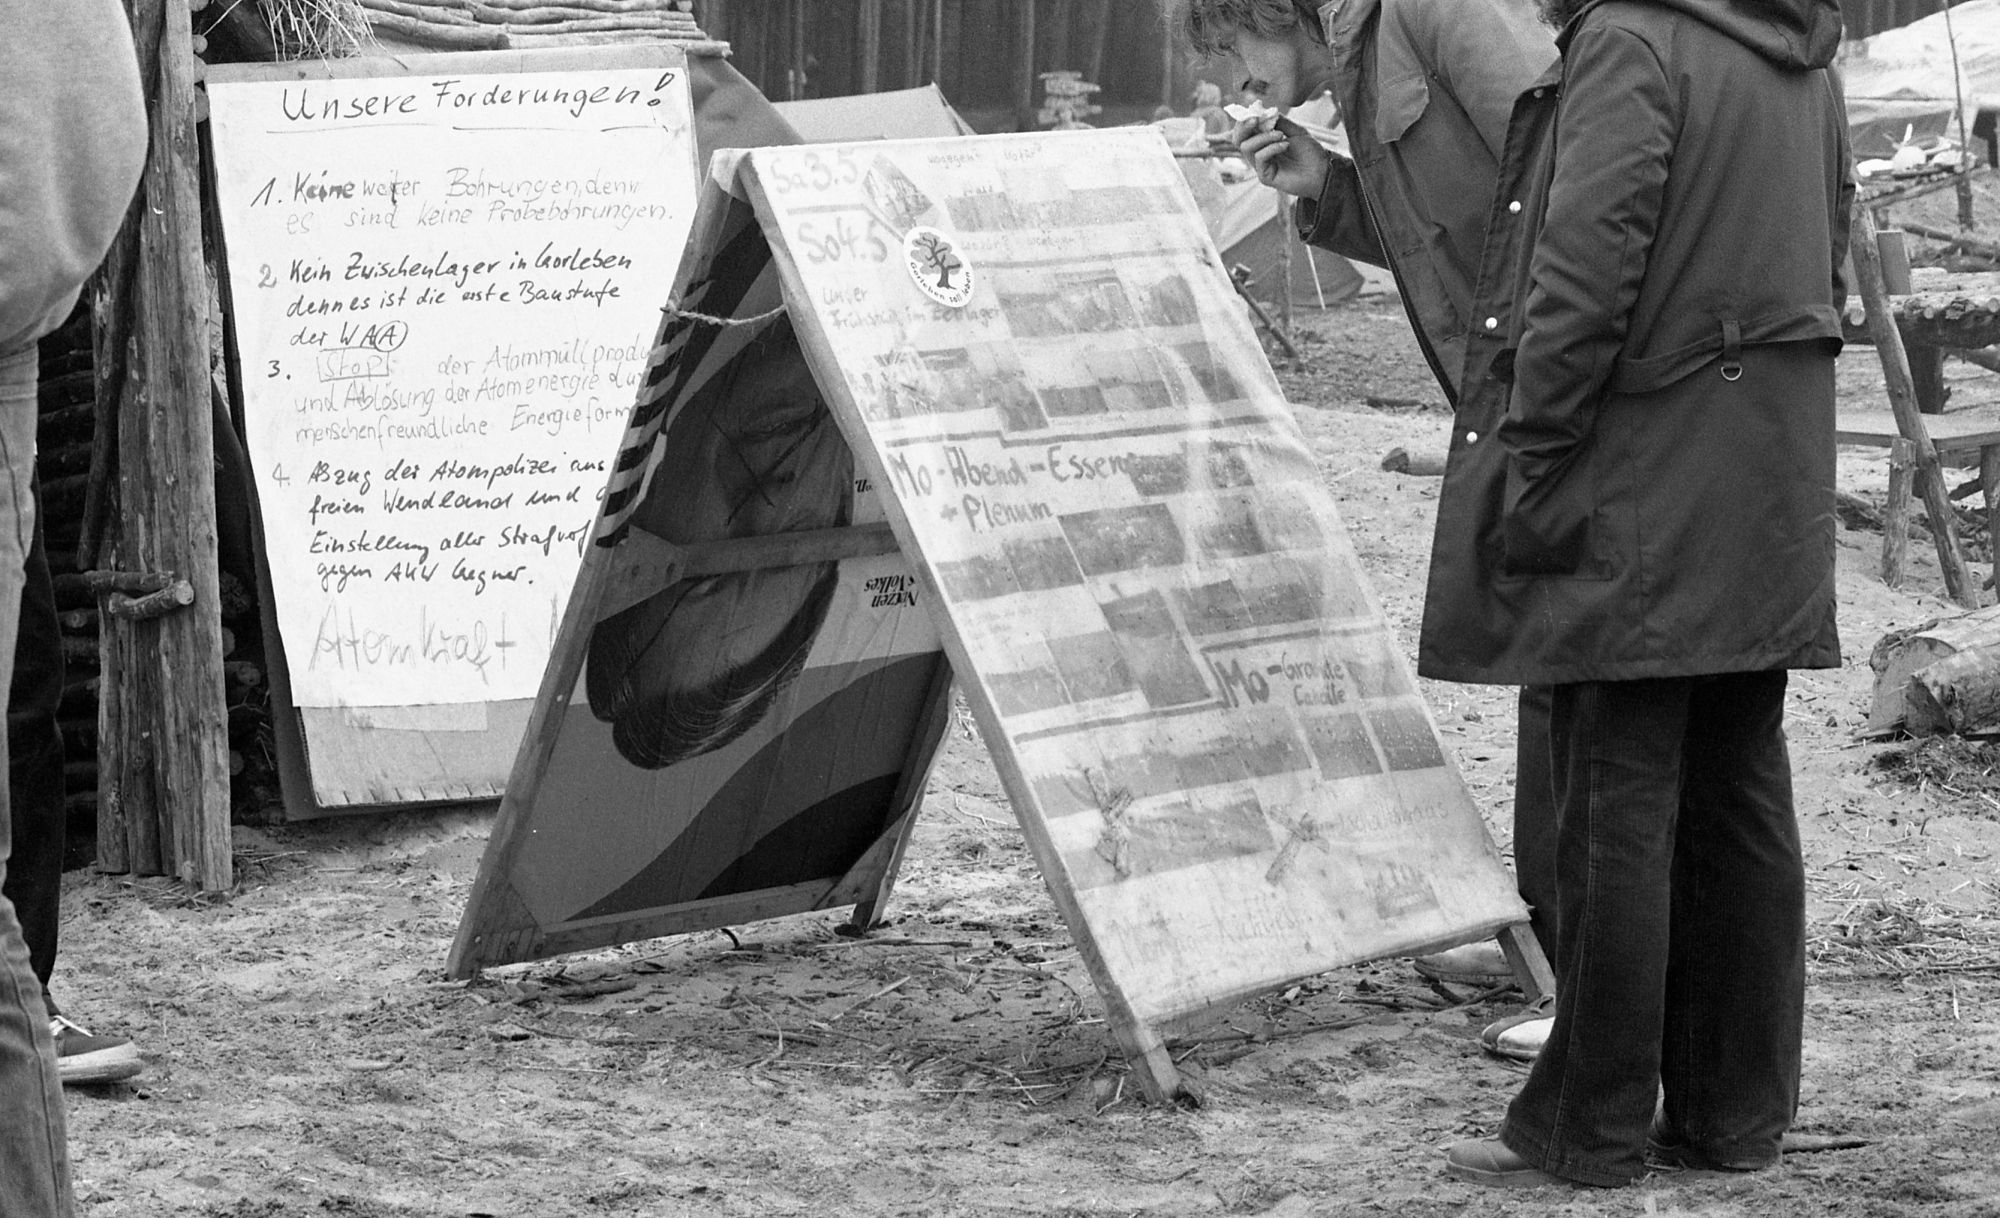 Unsere Forderungen!
1. Keine weiter Bohrungen, denn
es sind keine Probebohrungen.
2. Kein Zwischenlager in Gorleben
denn es ist die erste Baustufe
der WAA
3. Stop der Atommüllprodu
und Ablösung der Atomenergie dur
menschenfreundliche Energieform
4. Abzug der Atompolizei aus
freien Wendland und
Einstellung aller Strafverf
gegen AKW Gegner.
Atomkraft
Sa 3.5
wogegen? Wofür?
So 4.5
Wofür? wogegen?
Gorleben soll leben
Unser
Frühstück im Zeltlager
Mo-Abend-Essen
+ Plenum
Mo-Grande
Notzen
s Volkes